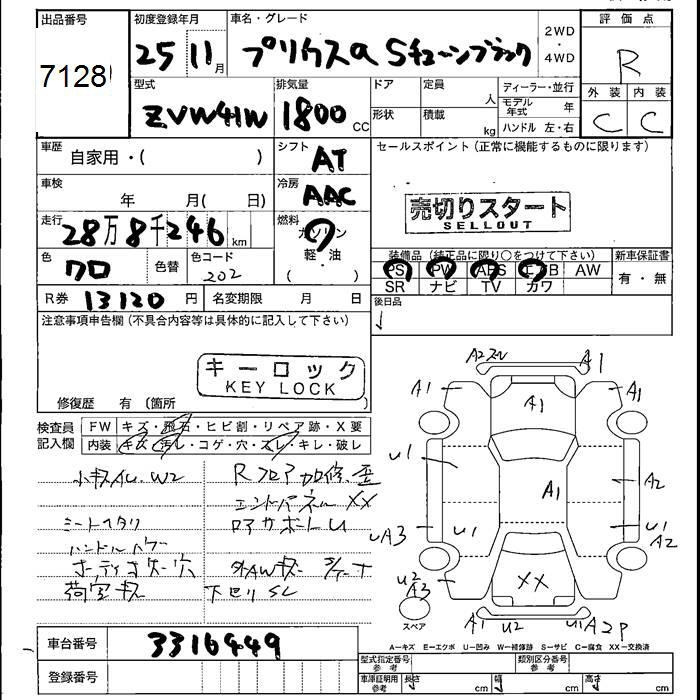 出品番号
7128
初度登録年月
25 11月
車名・グレード
プリウスα Sチューンブラック
2WD
・
4WD
評価点
R
外装 内装
C C
型式
ZVW41W
排気量
1800 CC
ドア
形状
定員
人
積載
kg
ディーラー・並行
モデル年式 年
ハンドル 左・右
車歴
自家用・( )
シフト
AT
セールスポイント(正常に機能するものに限ります)
車検
年 月( 日)
冷房
AAC
売切りスタート
SELLOUT
走行
28万8千246km
燃料
ガソリン
・
軽・油
( )
色
クロ
色替
色コード
202
装備品(純正品に限り○をつけて下さい)
PS PW ABS エアB AW
SR ナビ TV カワ
新車保証書
有・無
R券 13120円
名変期限 月 日
後日品
注意事項申告欄(不具合内容等は具体的に記入して下さい)
キーロック
KEY LOCK
修復歴 有(箇所 )
検査員
記入欄
FW キズ・飛石・ヒビ割・リペア跡・X要
内装 キズ・汚レ・コゲ・穴・スレ・キレ・破レ
小キズ凹.W2
Rフロア加修.歪
エンドパネルXX
シートヘタリ
ロアサポートU
ハンドル
荷室キズ
外AWキズ
下セリSL
A1
A1
A1
A1
U1
A2
A1
UA3
U1
U1
A2
U2
A3
XX
A1
U2
U1
A2P
スペア
A-キズ E-エクボ U-凹み W-補修跡 S-サビ C-腐食 XX-交換済
車台番号
3316449
登録番号
型式指定番号
参考
類別区分番号
参考
車庫証明用
参考
長さ cm
幅 cm
高さ cm